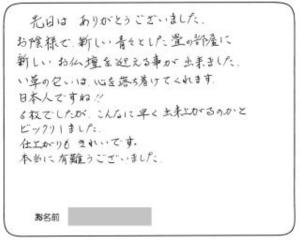 先日は ありがとうございました。
お陰様で、新しい青々とした畳の部屋に
新しい お仏壇を迎える事が出来ました。
い草の匂いは、心を落ち着けてくれます。
日本人ですね!!
6枚でしたが、こんなに早く出来上がるのかと
ビックリしました。
仕上がりも きれいです。
本当に有難うございました。
お名前